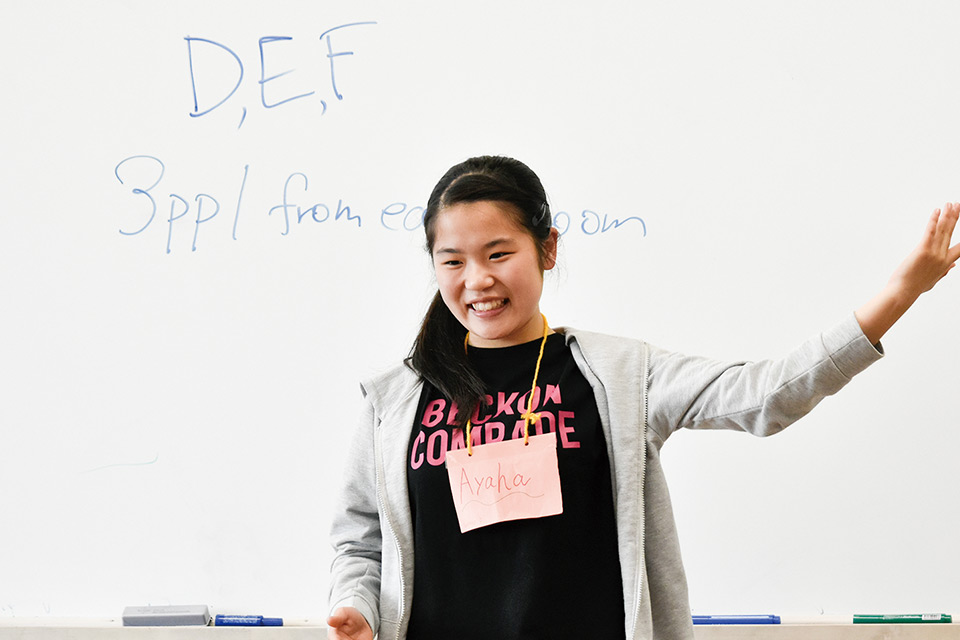 D, E, F
3ppl from room
BECKON
COMRADE
Ayaha